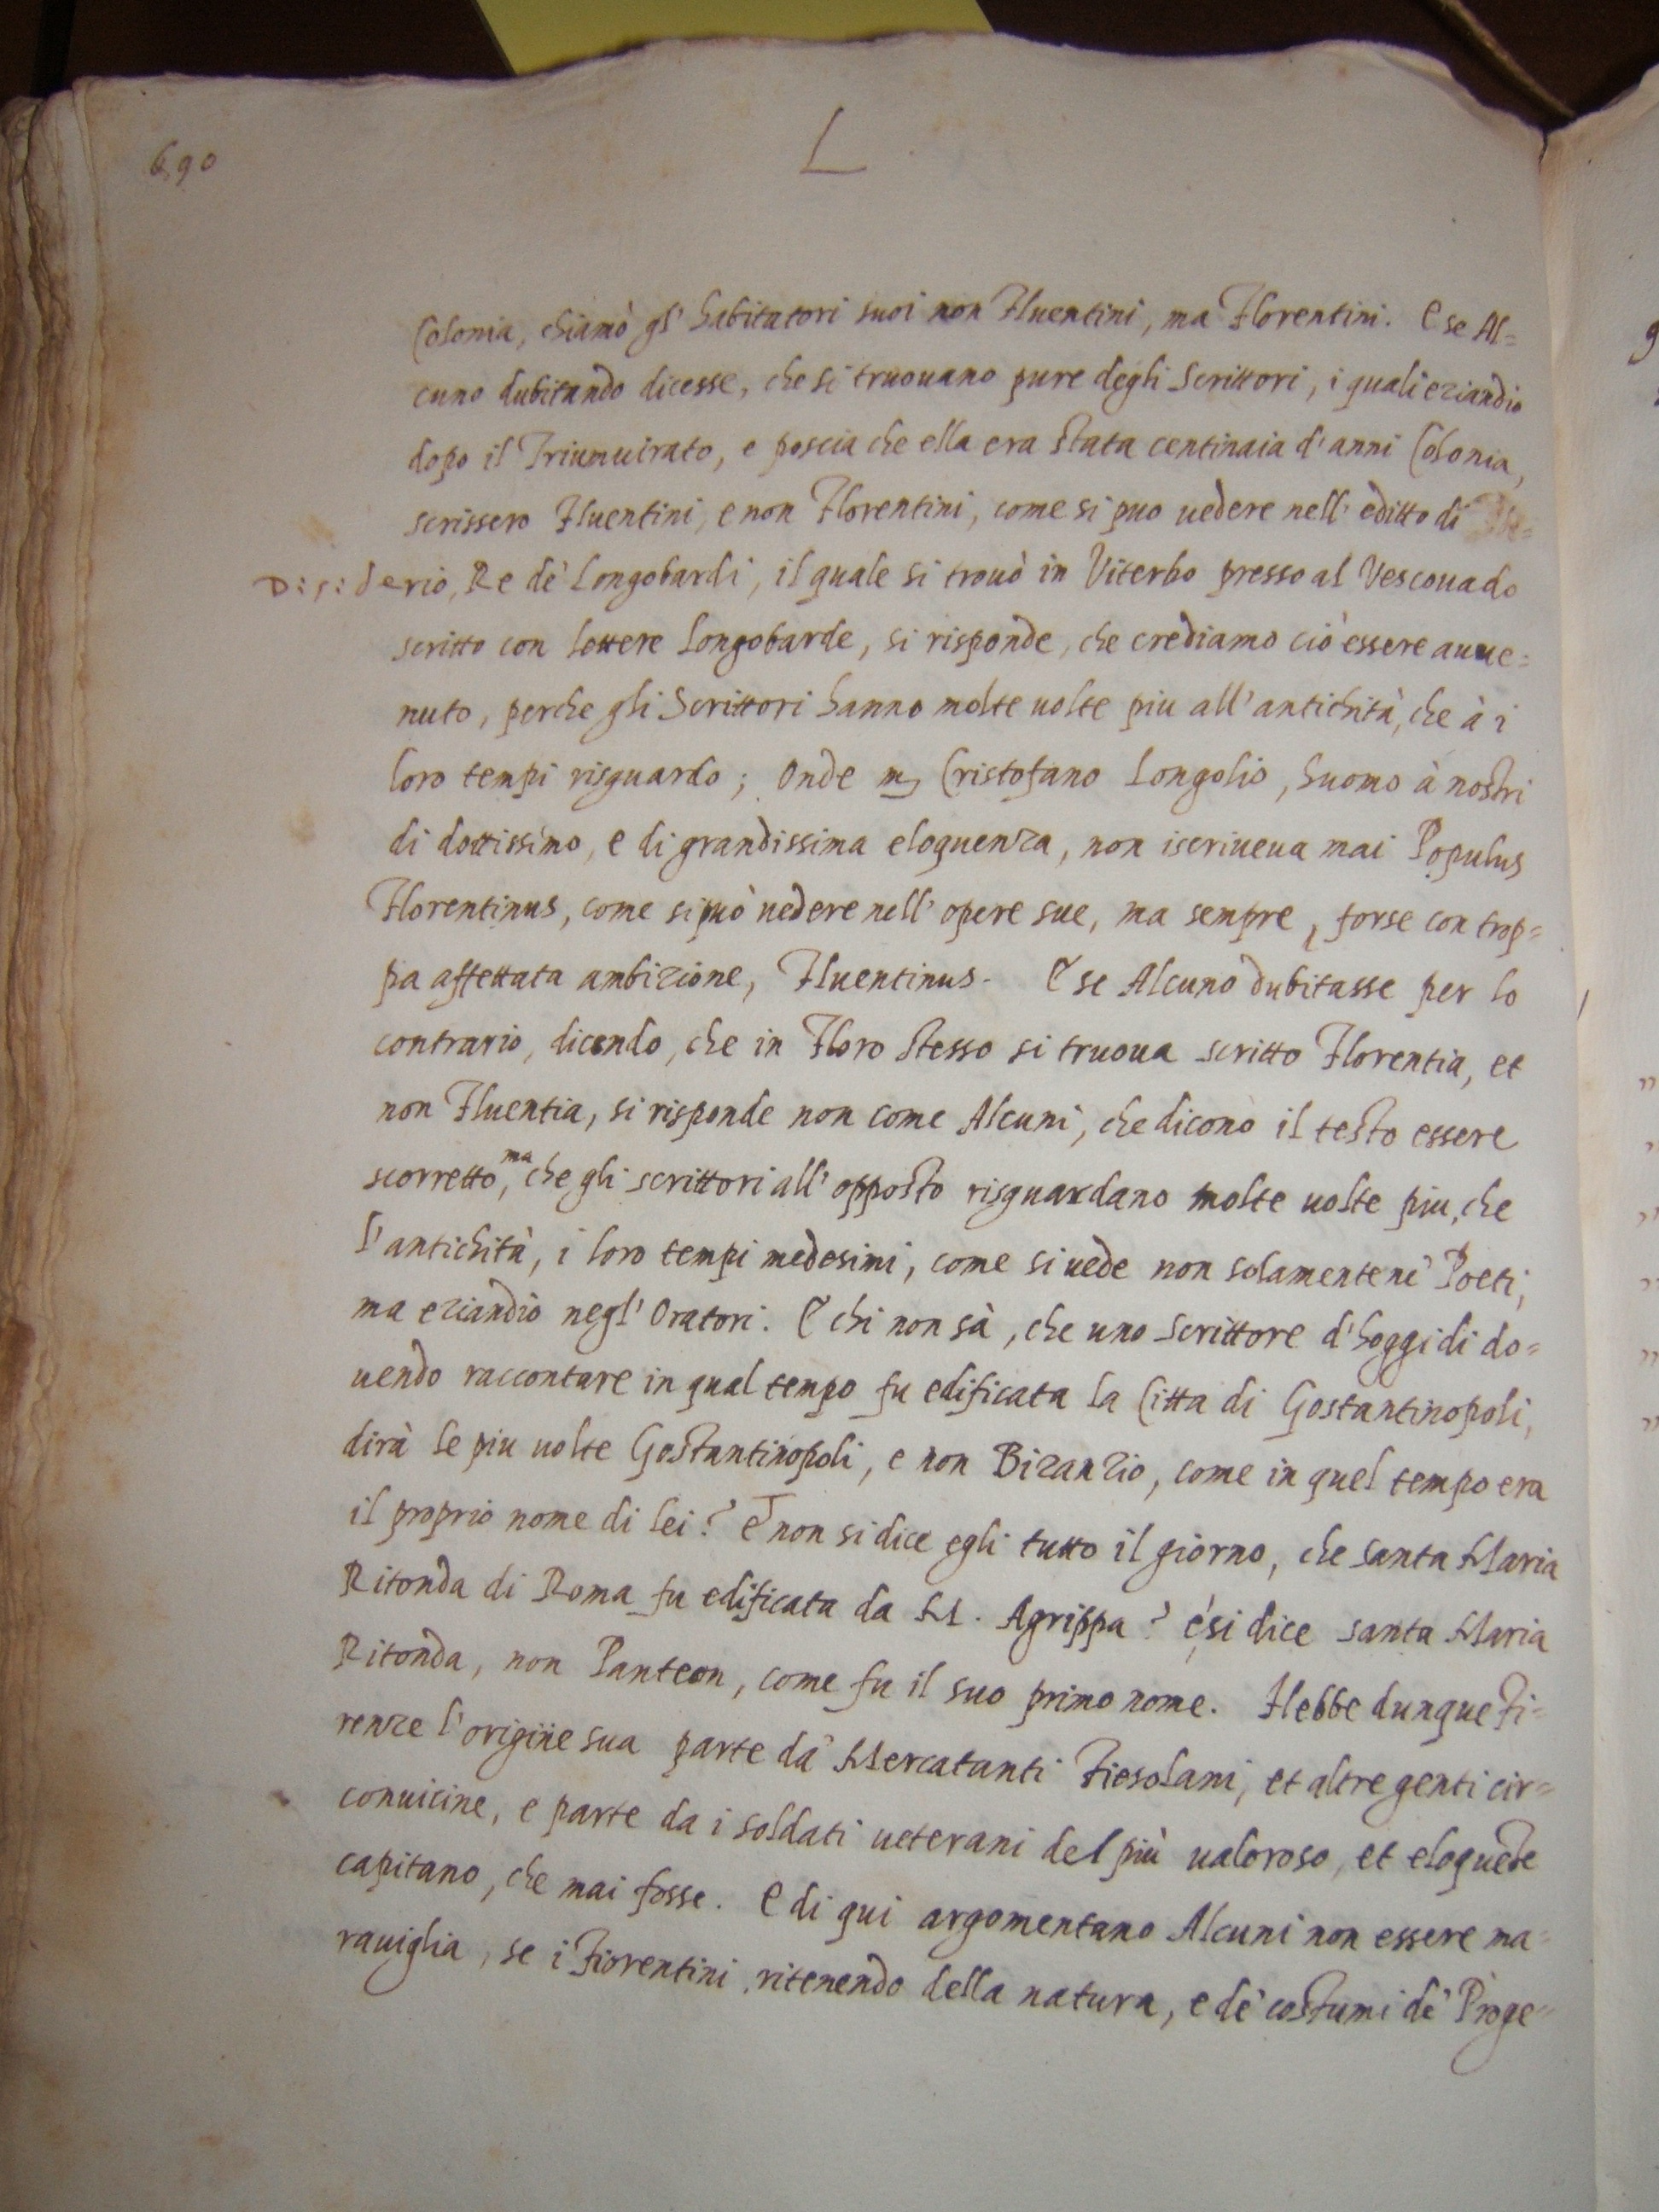 690
L
Colonia, chiamò gl' habitatori suoi non Fluentini, ma Florentini. E se Al=
cuno dubitando dicesse, che si truouano pure degli Scrittori, i quali eziandio
dopo il Triumuirato, e poscia che ella era stata centinaia d'anni Colonia,
scrissero Fluentini, e non Florentini, come si puo uedere nell' editto di
Disiderio, Re de' Longobardi, il quale si trouò in Viterbo presso al Vescouado
scritto con lettere Longobarde, si risponde, che crediamo ciò essere auue=
nuto, perche gli Scrittori hanno molte uolte piu all'antichità, che à i
loro tempi risguardo; Onde m. Cristofano Longolio, huomo à nostri
di dottissimo, e di grandissima eloquenza, non iscriueua mai Populus
Florentinus, come si può uedere nell' opere sue, ma sempre, forse con trop=
pa affettata ambizione, Fluentinus. E se Alcuno dubitasse per lo
contrario, dicendo, che in Floro stesso si truoua scritto Florentia, et
non Fluentia, si risponde non come Alcuni, che dicono il testo essere
scorretto, ma che gli scrittori all' opposto risguardano molte uolte piu, che
l'antichità, i loro tempi medesimi, come si uede non solamente ne' Poeti,
ma eziandio negl' Oratori. E chi non sà, che uno scrittore d'hoggi di do=
uendo raccontare in qual tempo fu edificata la Citta di Gostantinopoli,
dirà le piu uolte Gostantinopoli, e non Bizanzio, come in quel tempo era
il proprio nome di lei? E non si dice egli tutto il giorno, che santa Maria
Ritonda di Roma fu edificata da M. Agrippa? e si dice santa Maria
Ritonda, non Panteon, come fu il suo primo nome. Hebbe dunque Fi=
renze l'origine sua parte da' Mercatanti Fiesolani, et altre genti cir=
conuicine, e parte da i soldati ueterani del più ualoroso, et eloquēte
capitano, che mai fosse. E di qui argomentano Alcuni non essere ma=
rauiglia, se i Fiorentini ritenendo della natura, e de' costumi de' Proge=